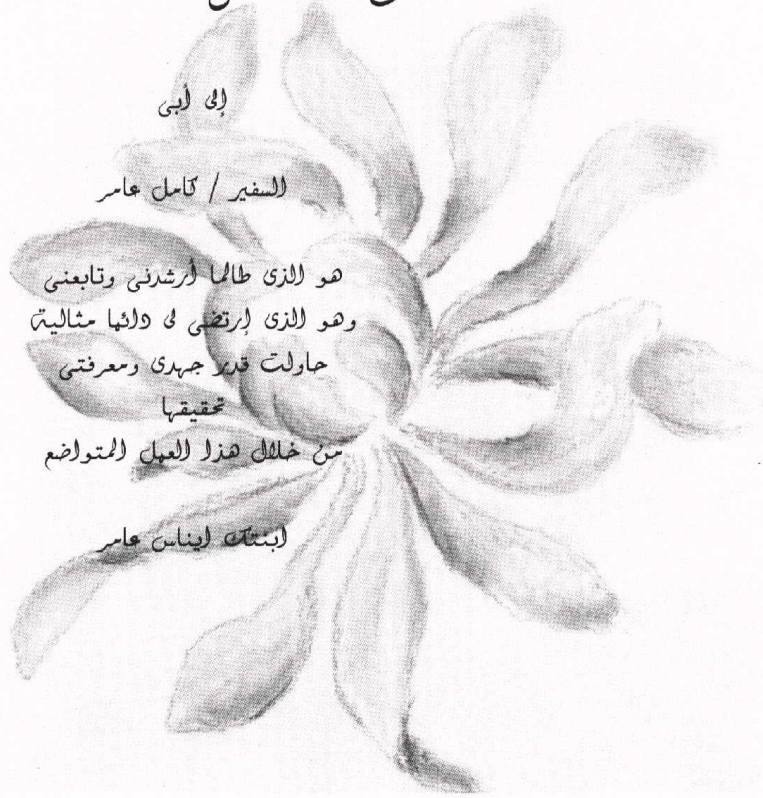 إلى أبى
السفير / كامل عامر
هو الذى طالما أرشدنى وتابعنى
وهو الذى إرتضى لى دائما مثالية
حاولت قدر جهدى ومعرفتى
تحقيقها
من خلال هذا العمل المتواضع
ابنتك ايناس عامر